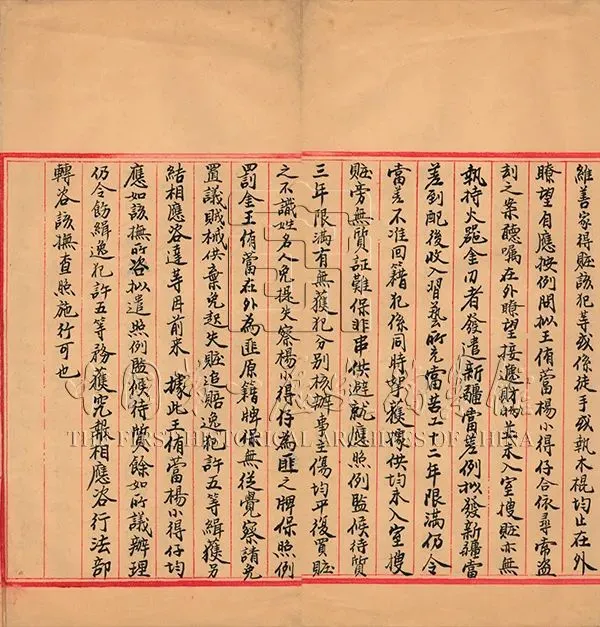 維善家得賍該犯等或係徒手或執木棍均止在外
瞭望自應按例問擬王侑蕾楊小得仔合依尋常盗
刻之案聽嘱在外瞭望接遞財物並未入室搜賍亦無
執持火器金刃者發遣新疆當差例擬發新疆當
差到配後收入習藝所充當苦工十二年限滿仍令
當差不准回籍犯係同時拏獲據供均未入室搜
賍旁無質証難保非串供避就應照例監候待質
三年限滿有無獲犯分别核辦事主傷均平復買賍
之不識姓名人免提失察楊小得仔為匪之牌保照例
罰金王侑蕾在外為匪原籍牌保無從覺察請免
置議賊械供棄免起失賍追賠逸犯許五等緝獲另
結相應咨達等因前來據此王侑蕾楊小得仔均
應如該撫所咨擬遣照例監候待質餘如所議辦理
仍令飭緝逸犯許五等務獲究報相應咨行法部
轉咨該撫查照施行可也
中国第一历史档案馆
THE FIRST HISTORICAL ARCHIVES OF CHINA